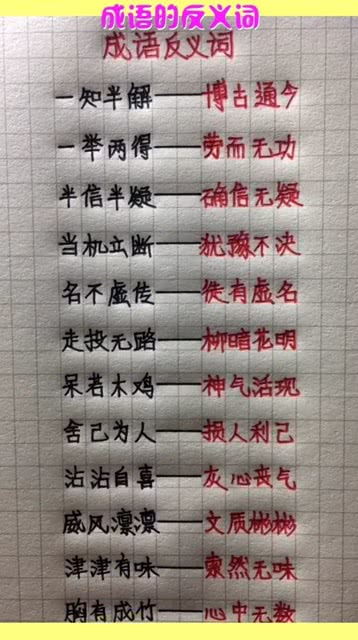 成语的反义词
成语反义词
一知半解——博古通今
一举两得——劳而无功
半信半疑——确信无疑
当机立断——犹豫不决
名不虚传——徒有虚名
走投无路——柳暗花明
呆若木鸡——神气活现
舍己为人——损人利己
沾沾自喜——灰心丧气
威风凛凛——文质彬彬
津津有味——索然无味
胸有成竹——心中无数